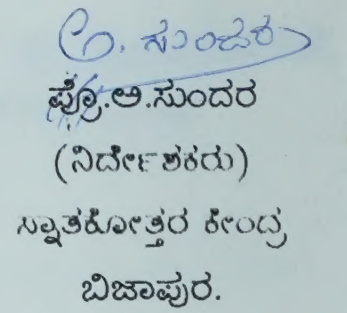 ಅ. ಸುಂದರ
ಪ್ರೊ.ಅ.ಸುಂದರ
(ನಿರ್ದೇಶಕರು)
ಸ್ನಾತಕೋತ್ತರ ಕೇಂದ್ರ
ಬಿಜಾಪುರ.